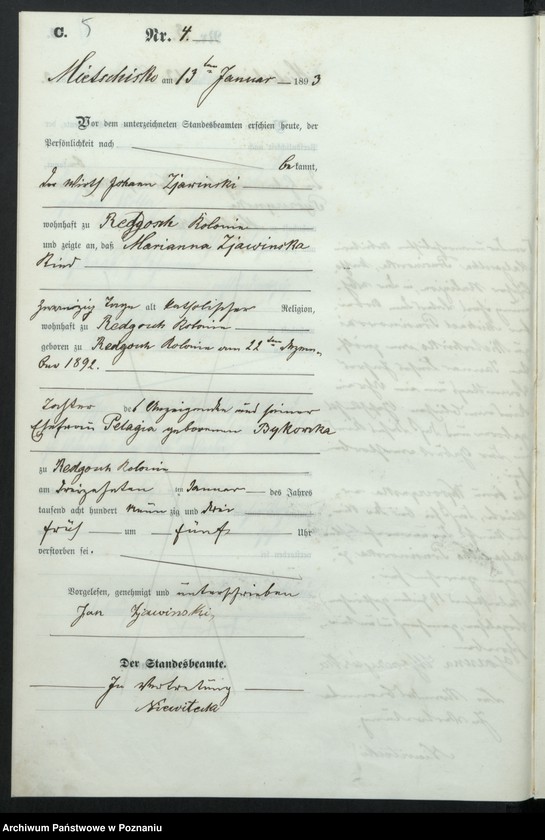 C. 5
Nr. 4.
Mietschisko am 13ten Januar 1893
Vor dem unterzeichneten Standesbeamten erschien heute, der
Persönlichkeit nach
bekannt,
der Wirth Johann Zjawinski
wohnhaft zu Redgosch Kolonie
und zeigte an, daß Marianna Zjawinska
Kind
zwanzig Tage alt katholischer Religion,
wohnhaft zu Redgosch Kolonie
geboren zu Redgosch Kolonie am 22ten Dezem-
ber 1892.
Tochter des Anzeigenden und seiner
Ehefrau Pelagia geborenen Bykowska
zu Redgosch Kolonie
am dreizehnten ten Januar des Jahres
tausend acht hundert neunzig und drei
früh um fünf Uhr
verstorben sei.
Vorgelesen, genehmigt und unterschrieben
Jan Zjawinski,
Der Standesbeamte.
In Vertretung
Archiwum Państwowe w Poznaniu